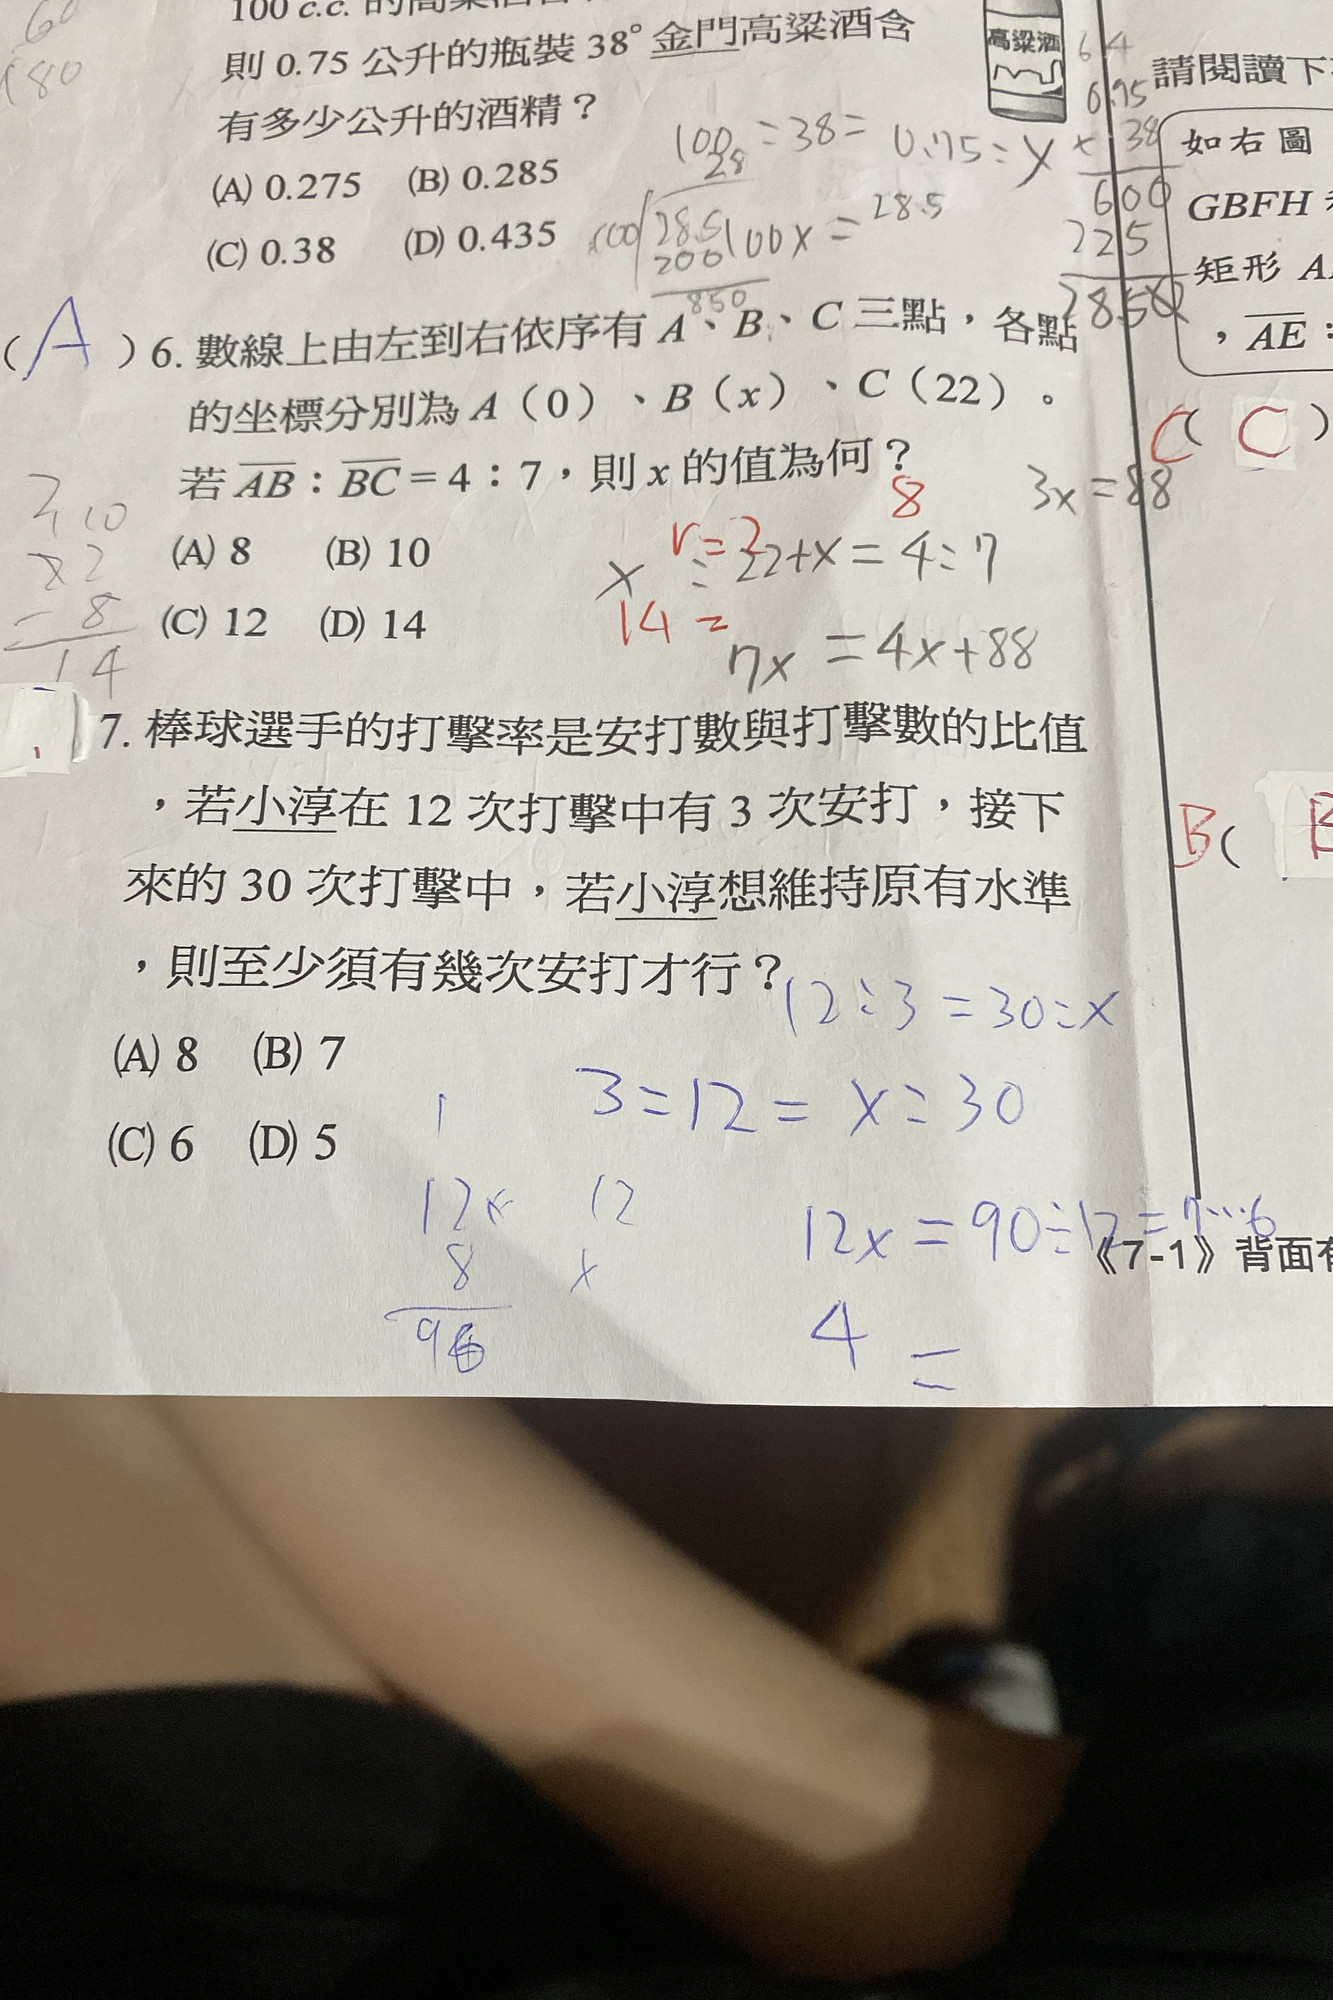 60
180
100 c.c. 的高粱酒含
則 0.75 公升的瓶裝 38° 金門高粱酒含
有多少公升的酒精？
(A) 0.275 (B) 0.285
(C) 0.38 (D) 0.435
高粱酒
100:38=0.75:x
28
100 28.5 100x=28.5
200
850
64
0.75
×38
600
225
2850
(A) 6. 數線上由左到右依序有 A、B、C 三點，各點
的坐標分別為 A（0）、B（x）、C（22）。
若 AB：BC＝4：7，則 x 的值為何？
8
(A) 8 (B) 10
(C) 12 (D) 14
22
-8
14
r=2
x:22+x=4:7
14=
7x=4x+88
3x=88
7. 棒球選手的打擊率是安打數與打擊數的比值
，若小淳在 12 次打擊中有 3 次安打，接下
來的 30 次打擊中，若小淳想維持原有水準
，則至少須有幾次安打才行？
(A) 8 (B) 7
(C) 6 (D) 5
12:3=30:x
3:12=x:30
12x=90÷12=7…6
4=
1
12×
8
96
12
x
《7-1》背面
請閱讀下
如右圖
GBFH
矩形 A
，AE：
C( C )
B( B